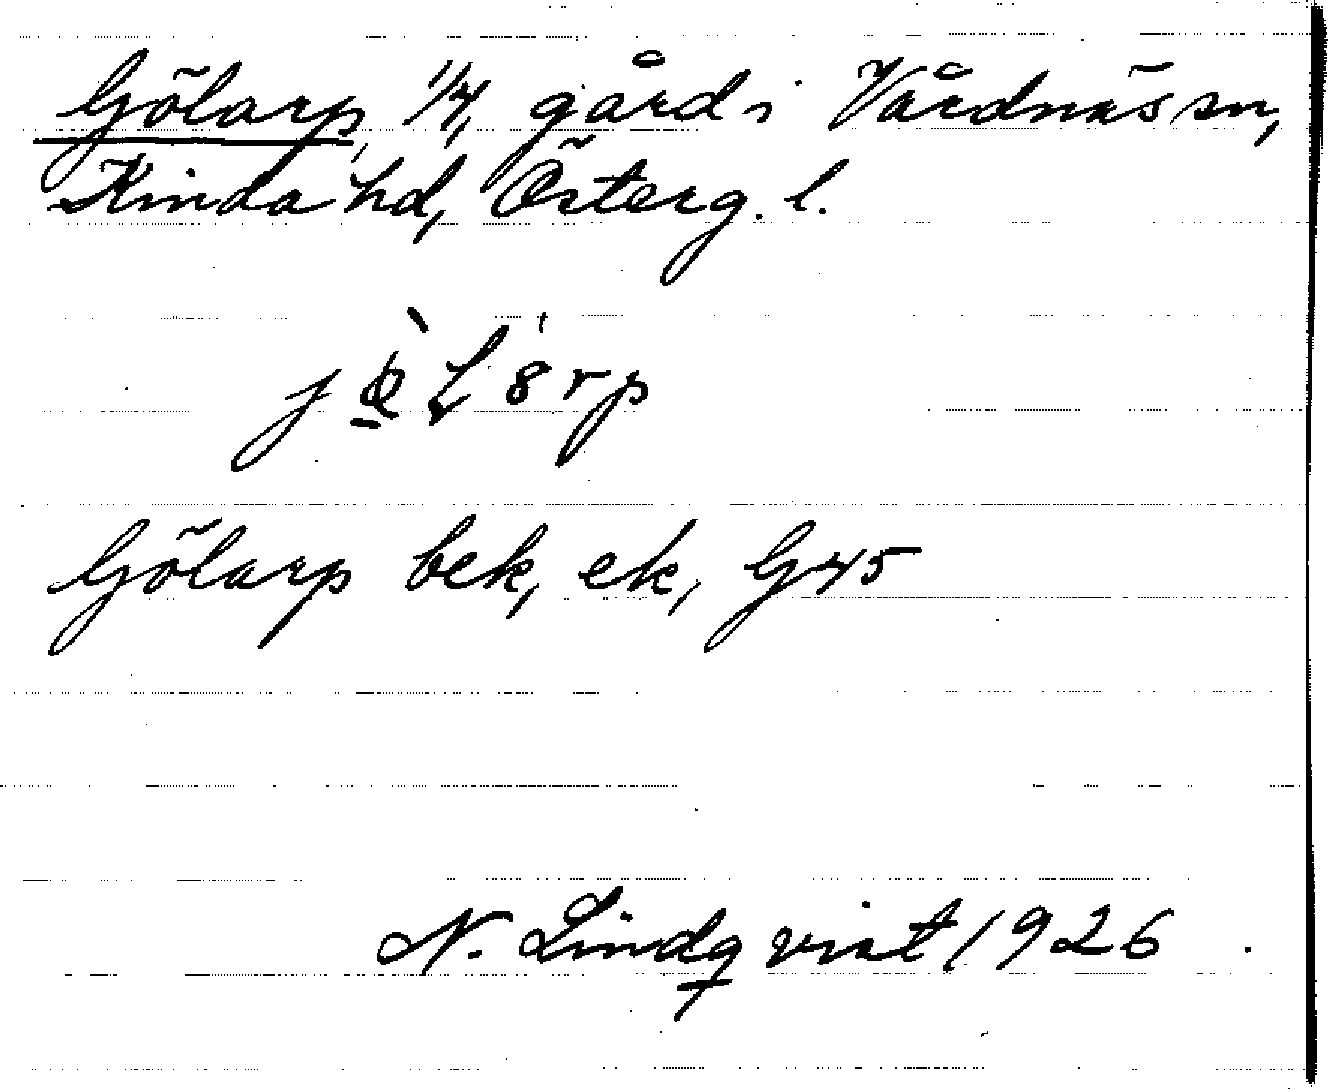 Gölarp, 1/4, gård i Vårdnäs sn,
Kinda hd, Österg. l.
Gölarp bek, ek, G45
N. Lindqvist 1926